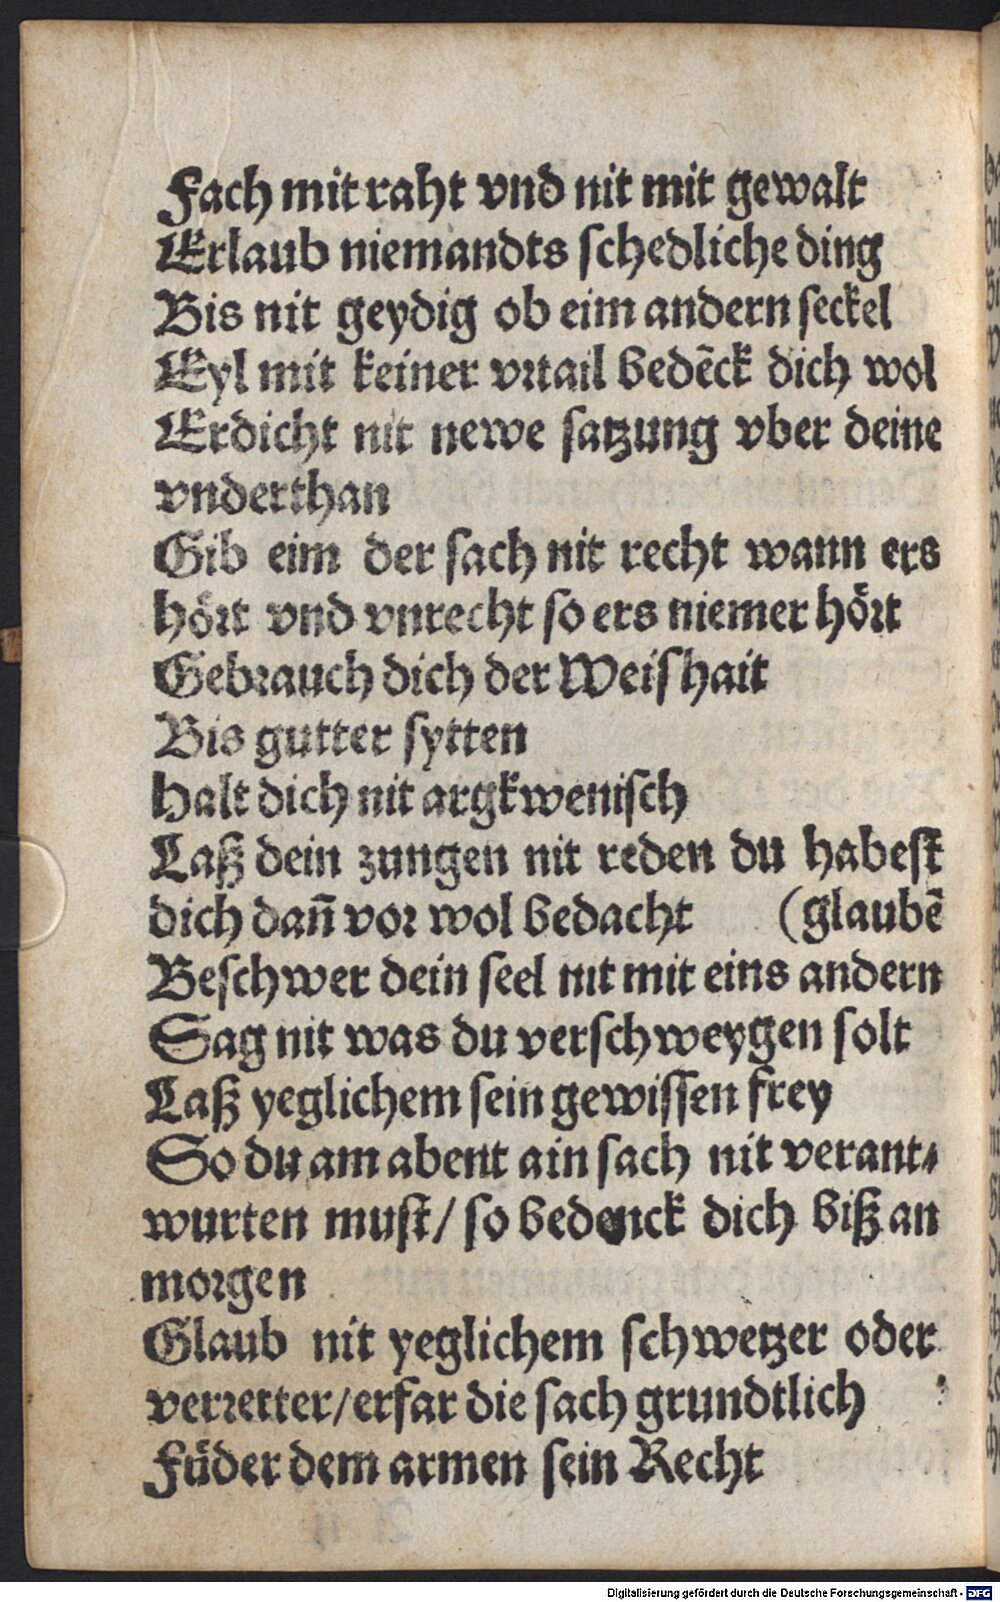 Fach mit raht vnd nit mit gewalt
Erlaub niemandts schedliche ding
Bis nit geydig ob eim andern seckel
Eyl mit keiner vrtail bedēck dich wol
Erdicht nit newe satzung vber deine
vnderthan
Gib eim der sach nit recht wann ers
hört vnd vnrecht so ers niemer hört
Gebrauch dich der Weishait
Bis gutter sytten
Halt dich nit argkwenisch
Laß dein zungen nit reden du habest
dich dañ vor wol bedacht (glaubē
Beschwer dein seel nit mit eins andern
Sag nit was du verschweygen solt
Laß yeglichem sein gewissen frey
So du am abent ain sach nit verant⸗
wurten must/ so bedenck dich biß an
morgen
Glaub nit yeglichem schwetzer oder
verretter/erfar die sach grundtlich
Füder dem armen sein Recht
Digitalisierung gefördert durch die Deutsche Forschungsgemeinschaft - DFG